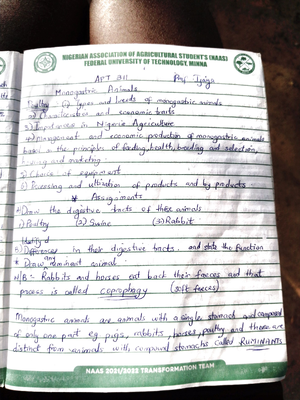 NIGERIAN ASSOCIATION OF AGRICULTURAL STUDENT'S (NAAS)
FEDERAL UNIVERSITY OF TECHNOLOGY, MINNA
APT 311 Prof Ijaiya
Monogastric Animals
Poultry: (1) Types and breeds of monogastric animals
2) Characterization and economic traits
3) Importance in Nigeria Agriculture
4) Management and economic production of monogastric animals
based on the principles of feeding, health, breeding and selection,
housing and marketing
5) Choice of equipment
6) Processing and utilization of products and by products
* Assignments
1) Draw the digestive tracts of these animals
(1) Poultry (2) Swine (3) Rabbit
Identify d
3) Differences in their digestive tracts, and state the function
Draw any ruminant animal
N/B: Rabbits and horses eat back their faeces and that
process is called coprophagy (soft faeces)
Monogastric animals are animals with a single stomach and composed
of only one part eg pigs, rabbits, horses, poultry and these are
distinct from animals with compound stomachs called RUMINANTS
NAAS 2021/2022 TRANSFORMATION TEAM